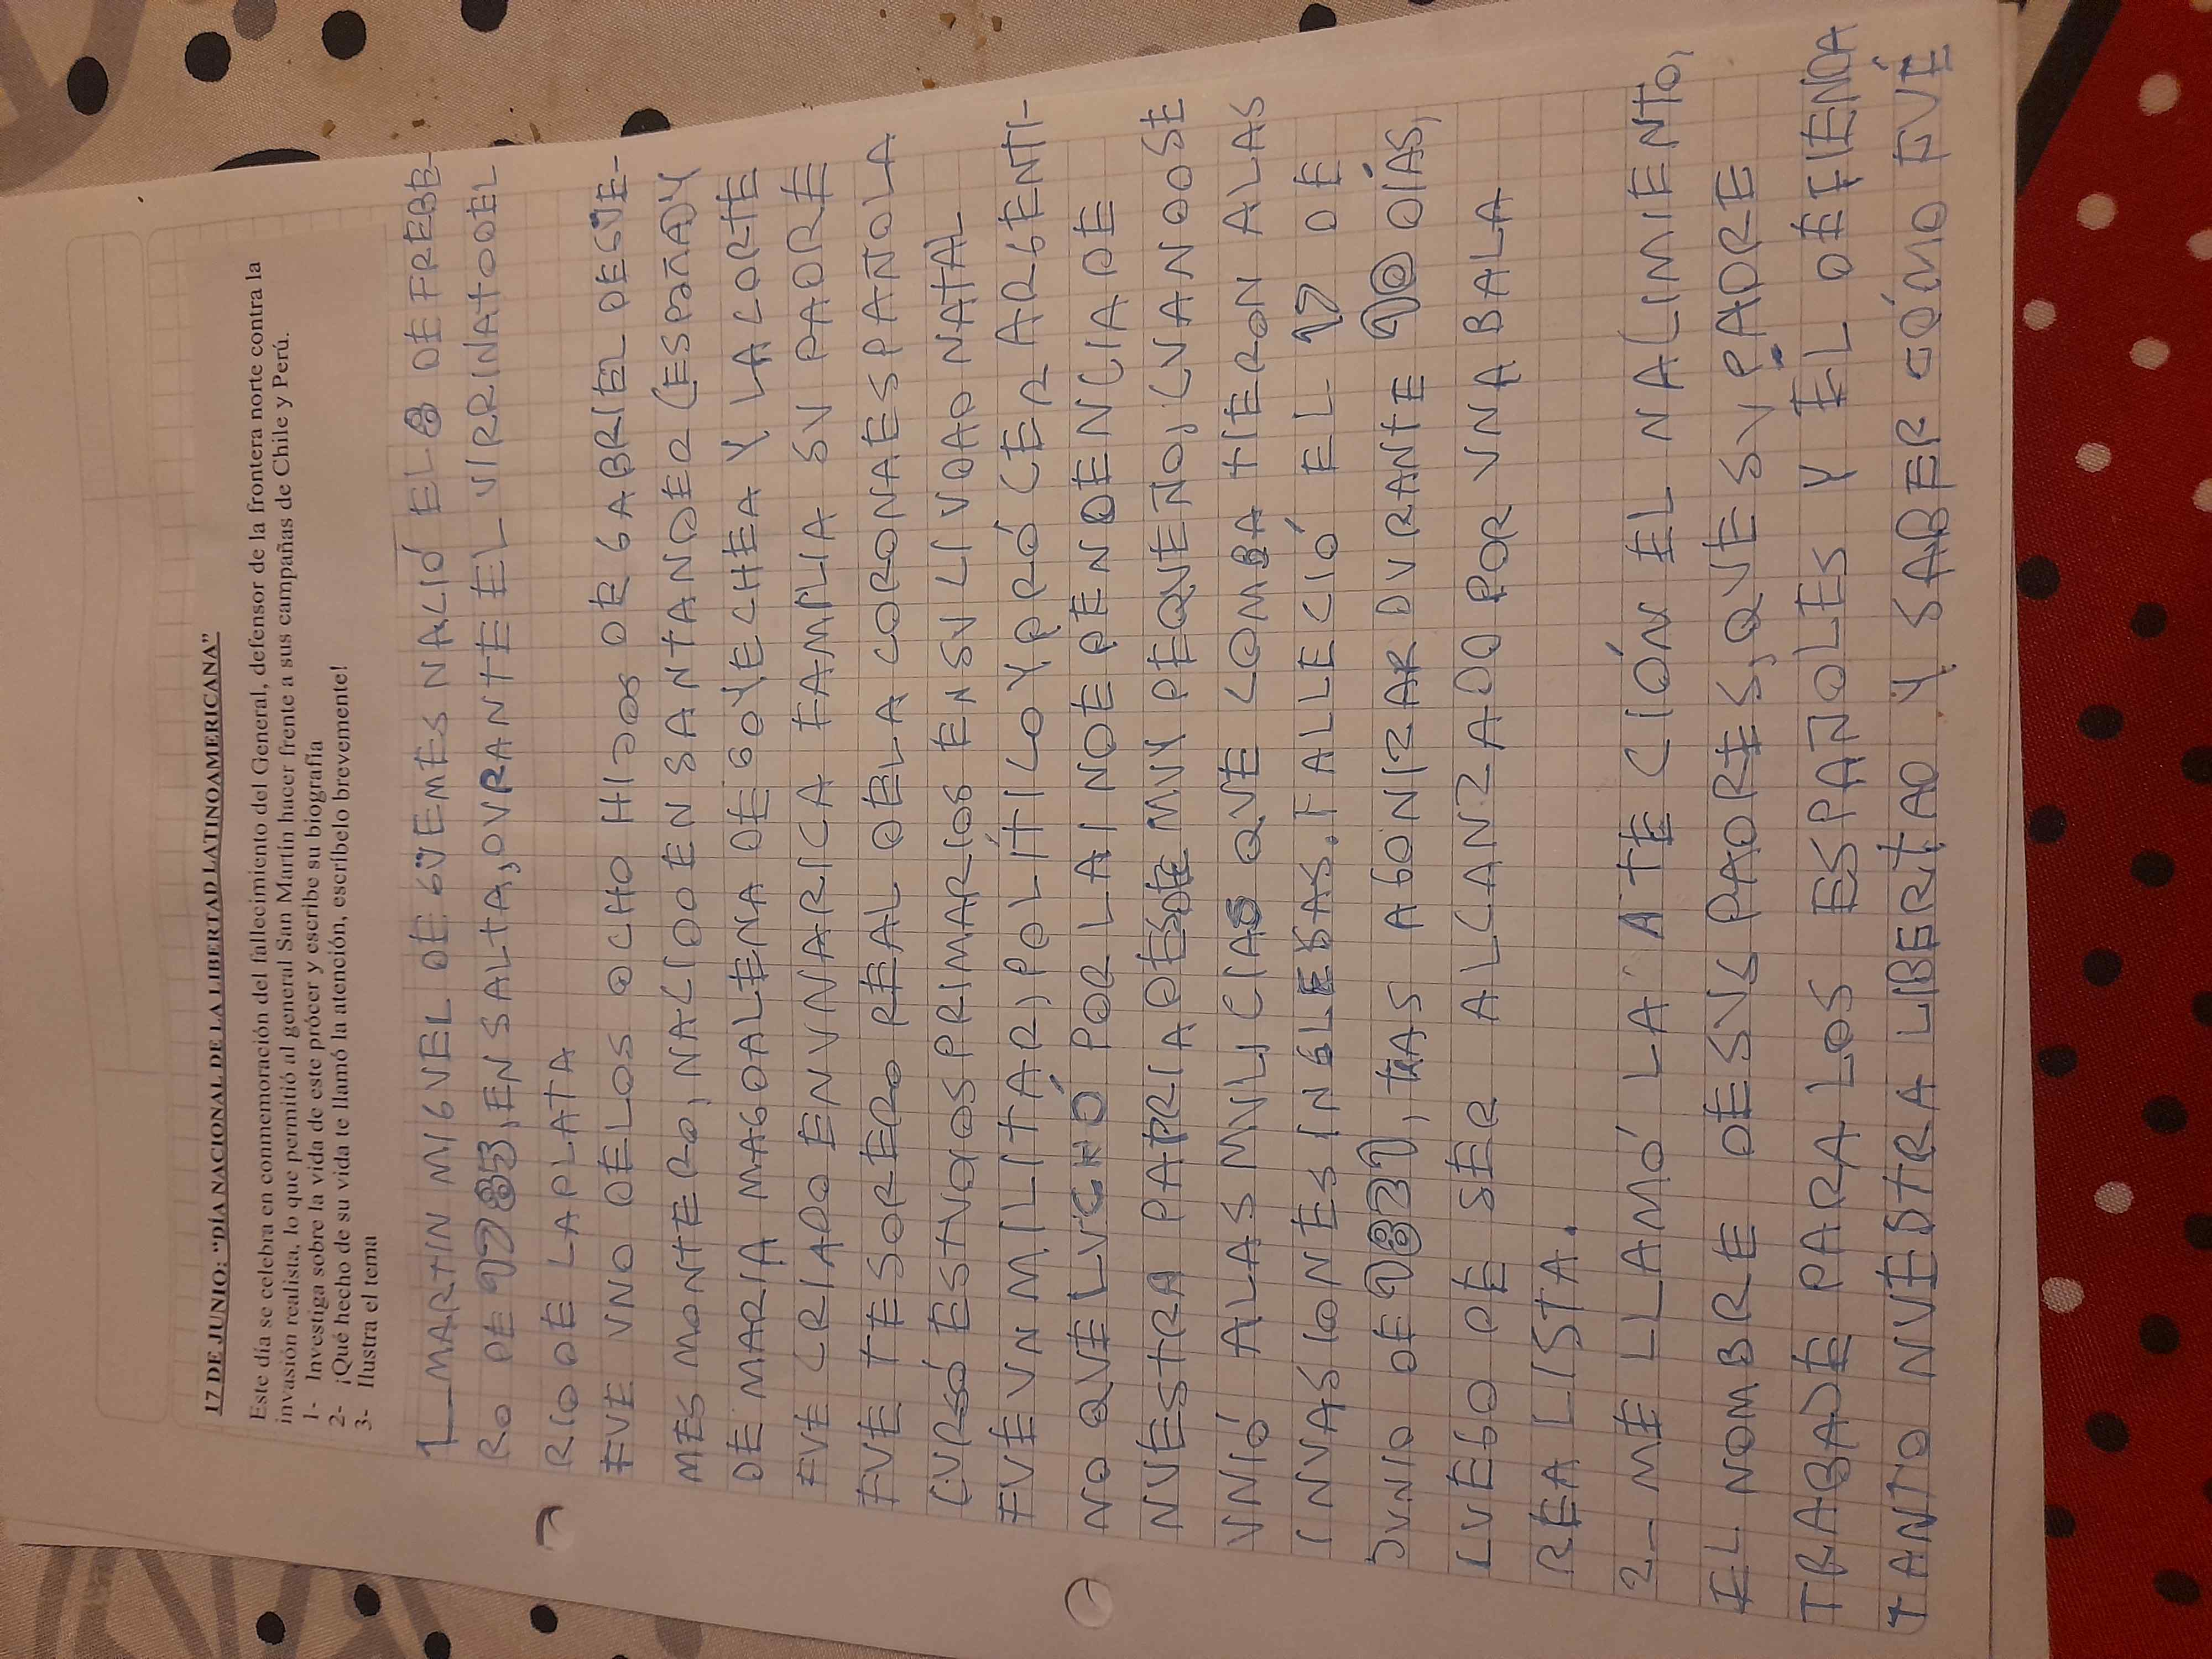 17 DE JUNIO: “DÍA NACIONAL DE LA LIBERTAD LATINOAMERICANA”
Este día se celebra en conmemoración del fallecimiento del General, defensor de la frontera norte contra la
invasión realista, lo que permitió al general San Martín hacer frente a sus campañas de Chile y Perú.
1- Investiga sobre la vida de este prócer y escribe su biografía
2- ¡Qué hecho de su vida te llamó la atención, escríbelo brevemente!
3- Ilustra el tema
1_ MARTIN MIGUEL DE GÜEMES NACIÓ EL 8 DE FREBE-
RO DE 1785, EN SALTA, DURANTE EL VIRRINATO DEL
RIO DE LA PLATA
FUE UNO DE LOS OCHO HIJOS DE GABRIEL DE GÜE-
MES MONTERO, NACIDO EN SANTANDER (ESPAÑA) Y
DE MARIA MAGDALENA DE GOYECHEA Y LA CORTE
FUE CRIADO EN UNA RICA FAMILIA SU PADRE
FUE TESORERO REAL DE LA CORONA ESPAÑOLA
CURSÓ ESTUDIOS PRIMARIOS EN SU CIUDAD NATAL
FUE UN MILITAR, POLÍTICO Y PRÓCER ARGENTI-
NO QUE LUCHÓ POR LA INDEPENDENCIA DE
NUESTRA PAPRIA DESDE MUY PEQUEÑO, CUANDO SE
UNIÓ A LAS MILICIAS QUE COMBATIERON A LAS
INVASIONES INGLESAS. FALLECIÓ EL 17 DE
JUNIO DE 1821, TRAS AGONIZAR DURANTE 10 DÍAS,
LUEGO DE SER ALCANZADO POR UNA BALA
REALISTA.
2_ ME LLAMÓ LA ATECIÓN EL NACIMIENTO,
EL NOMBRE DE SUS PADRES, QUE SU PADRE
TRABAJE PARA LOS ESPAÑOLES Y EL DEFIENDA
TANTO NUESTRA LIBERTAD Y SABER CÓMO FUÉ